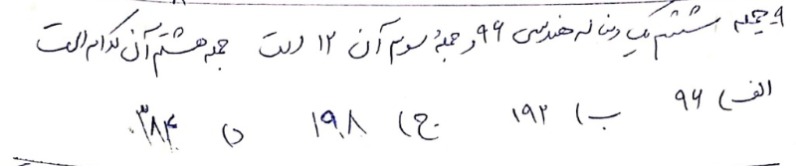 ۹- جمله ششم یک دنباله هندسی ۹۶ و جمله سوم آن ۱۲ است جمله هشتم آن کدام است
الف) ۹۶ ب) ۱۹۲ ج) ۱۹۸ د) ۳۸۴